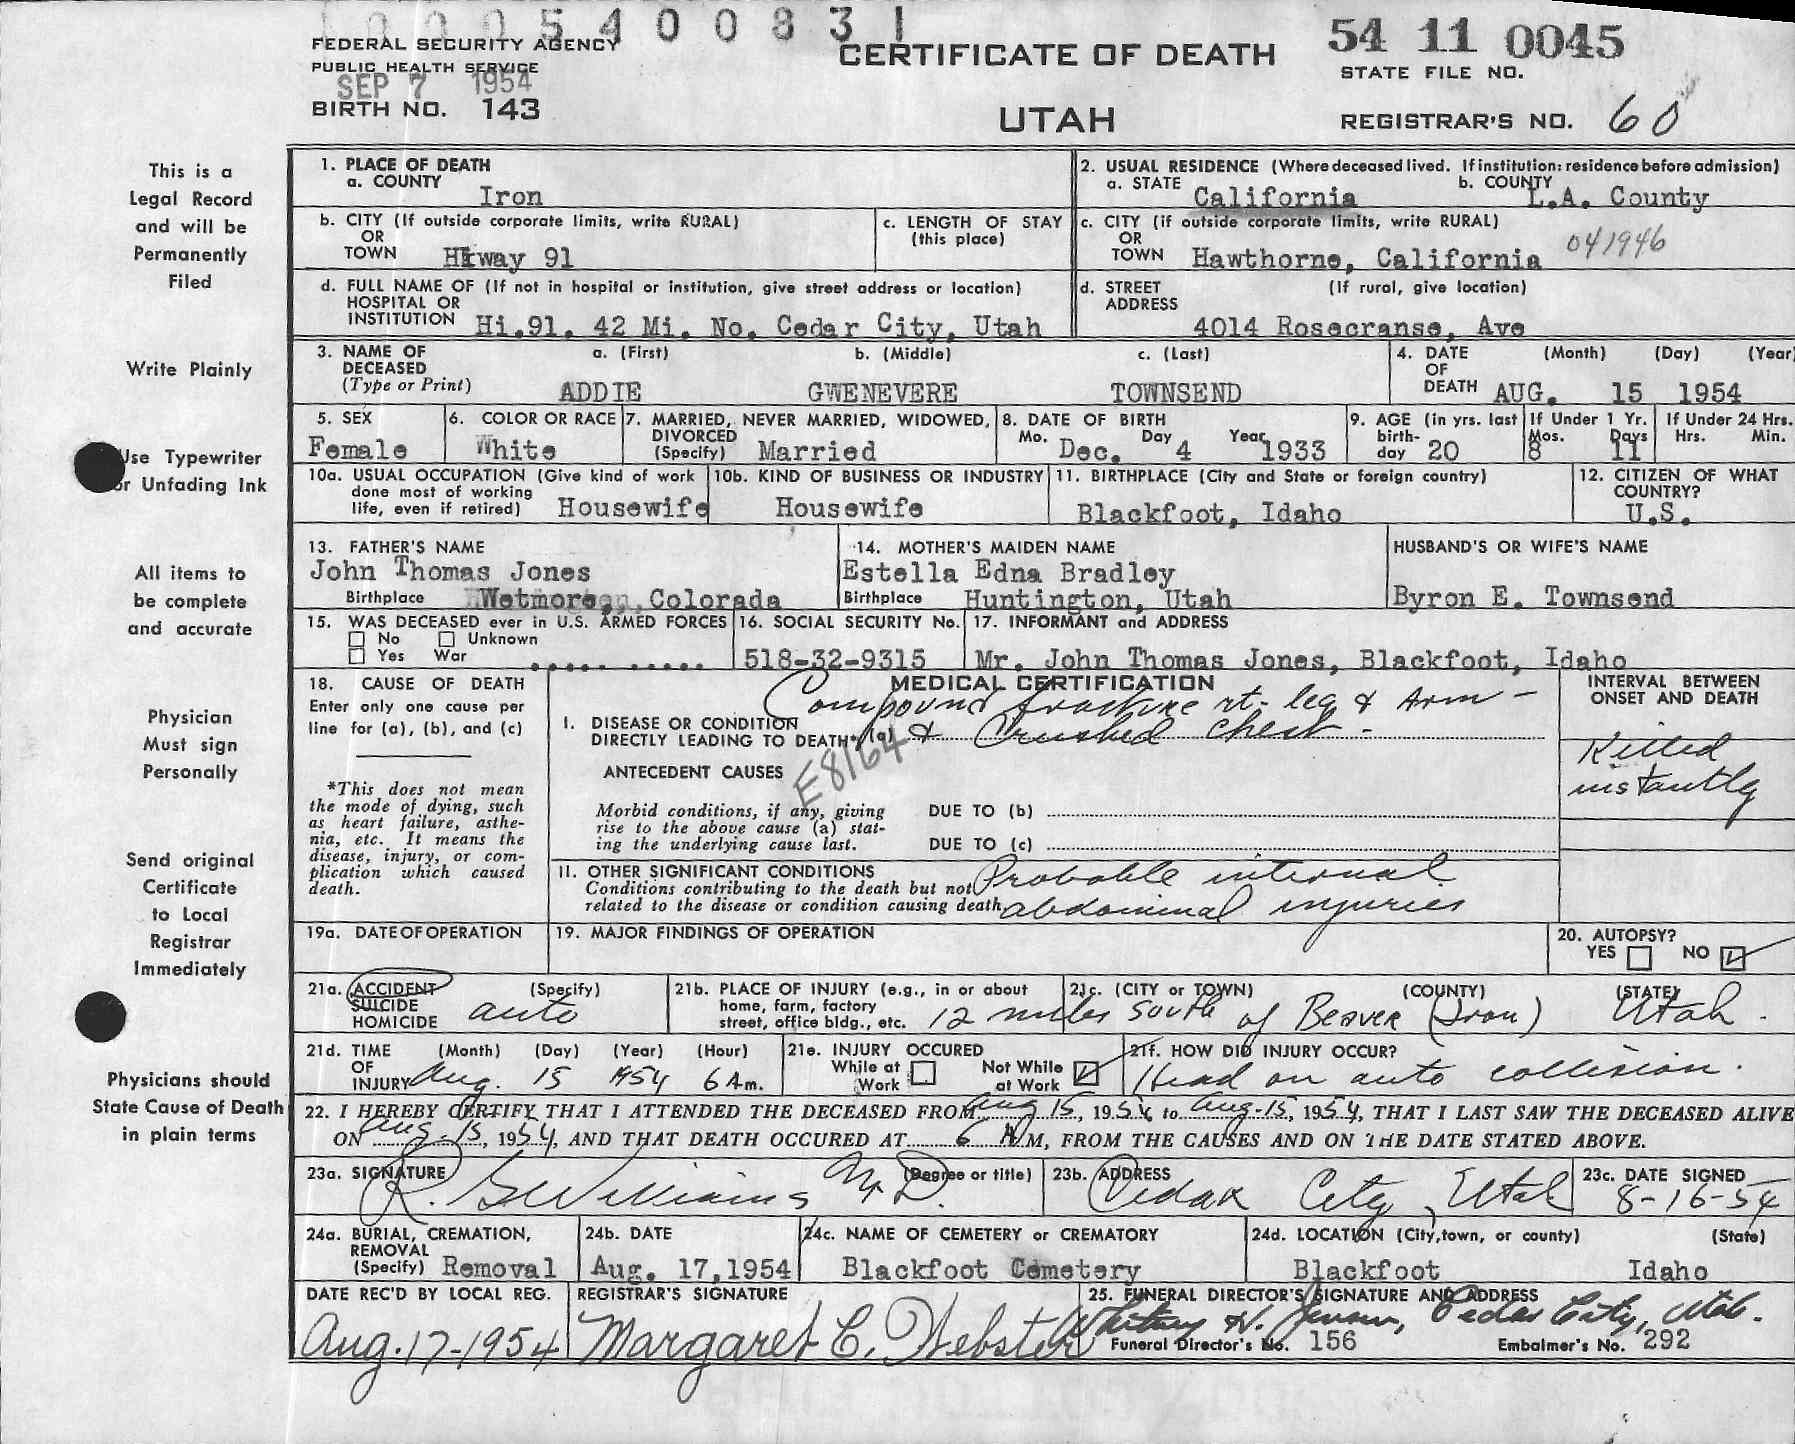 1 0 0 0 5 4 0 0 8 3 1
FEDERAL SECURITY AGENCY
PUBLIC HEALTH SERVICE
SEP 7 1954
BIRTH NO. 143
CERTIFICATE OF DEATH
UTAH
54 11 0045
STATE FILE NO.
REGISTRAR'S NO. 60
This is a
Legal Record
and will be
Permanently
Filed
Write Plainly
Use Typewriter
or Unfading Ink
All items to
be complete
and accurate
Physician
Must sign
Personally
Send original
Certificate
to Local
Registrar
Immediately
Physicians should
State Cause of Death
in plain terms
1. PLACE OF DEATH
a. COUNTY Iron
2. USUAL RESIDENCE (Where deceased lived. If institution: residence before admission)
a. STATE California b. COUNTY L.A. County
b. CITY (If outside corporate limits, write RURAL)
OR
TOWN Hiway 91
c. LENGTH OF STAY
(this place)
c. CITY (if outside corporate limits, write RURAL)
OR
TOWN Hawthorne, California 041946
d. FULL NAME OF (If not in hospital or institution, give street address or location)
HOSPITAL OR
INSTITUTION Hi.91. 42 Mi. No. Cedar City, Utah
d. STREET (If rural, give location)
ADDRESS
4014 Rosecranse, Ave
3. NAME OF a. (First) b. (Middle) c. (Last)
DECEASED
(Type or Print) ADDIE GWENEVERE TOWNSEND
4. DATE (Month) (Day) (Year)
OF
DEATH AUG. 15 1954
5. SEX
Female
6. COLOR OR RACE
White
7. MARRIED, NEVER MARRIED, WIDOWED,
DIVORCED
(Specify) Married
8. DATE OF BIRTH
Mo. Day Year
Dec. 4 1933
9. AGE (in yrs. last
birth-
day 20
If Under 1 Yr.
Mos. Days
8 11
If Under 24 Hrs.
Hrs. Min.
10a. USUAL OCCUPATION (Give kind of work
done most of working
life, even if retired) Housewife
10b. KIND OF BUSINESS OR INDUSTRY
Housewife
11. BIRTHPLACE (City and State or foreign country)
Blackfoot, Idaho
12. CITIZEN OF WHAT
COUNTRY?
U.S.
13. FATHER'S NAME
John Thomas Jones
Birthplace Wetmore, Colorada
14. MOTHER'S MAIDEN NAME
Estella Edna Bradley
Birthplace Huntington, Utah
HUSBAND'S OR WIFE'S NAME
Byron E. Townsend
15. WAS DECEASED ever in U.S. ARMED FORCES
No Unknown
Yes War
16. SOCIAL SECURITY No.
518-32-9315
17. INFORMANT and ADDRESS
Mr. John Thomas Jones, Blackfoot, Idaho
18. CAUSE OF DEATH
Enter only one cause per
line for (a), (b), and (c)
*This does not mean
the mode of dying, such
as heart failure, asthe-
nia, etc. It means the
disease, injury, or com-
plication which caused
death.
MEDICAL CERTIFICATION
Compound fracture rt. leg & Arm -
I. DISEASE OR CONDITION
DIRECTLY LEADING TO DEATH* (a) & Crushed Chest -
E8164
ANTECEDENT CAUSES
Morbid conditions, if any, giving
rise to the above cause (a) stat-
ing the underlying cause last.
DUE TO (b)
DUE TO (c)
INTERVAL BETWEEN
ONSET AND DEATH
Killed
instantly
11. OTHER SIGNIFICANT CONDITIONS
Conditions contributing to the death but not
related to the disease or condition causing death
Probable internal
abdominal injuries
19a. DATE OF OPERATION
19. MAJOR FINDINGS OF OPERATION
20. AUTOPSY?
YES NO
21a. ACCIDENT (Specify)
SUICIDE
HOMICIDE auto
21b. PLACE OF INJURY (e.g., in or about
home, farm, factory
street, office bldg., etc.
21c. (CITY or TOWN) (COUNTY) (STATE)
12 miles south of Beaver (Iron) Utah.
21d. TIME (Month) (Day) (Year) (Hour)
OF
INJURY Aug. 15 1954 6 Am.
21e. INJURY OCCURED
While at Work
Not While at Work
21f. HOW DID INJURY OCCUR?
Head on auto collision.
22. I HEREBY CERTIFY THAT I ATTENDED THE DECEASED FROM Aug 15, 1954 to Aug-15, 1954, THAT I LAST SAW THE DECEASED ALIVE
ON Aug-15, 1954, AND THAT DEATH OCCURED AT 6 AM, FROM THE CAUSES AND ON THE DATE STATED ABOVE.
23a. SIGNATURE (Degree or title)
R. G. Williams M.D.
23b. ADDRESS
Cedar City, Utah
23c. DATE SIGNED
8-16-54
24a. BURIAL, CREMATION,
REMOVAL
(Specify) Removal
24b. DATE
Aug. 17,1954
24c. NAME OF CEMETERY or CREMATORY
Blackfoot Cemetery
24d. LOCATION (City, town, or county) (State)
Blackfoot Idaho
DATE REC'D BY LOCAL REG.
Aug. 17-1954
REGISTRAR'S SIGNATURE
Margaret C. Webster
25. FUNERAL DIRECTOR'S SIGNATURE AND ADDRESS
Whitney H. Jenson, Cedar City, Utah.
Funeral Director's No. 156 Embalmer's No. 292